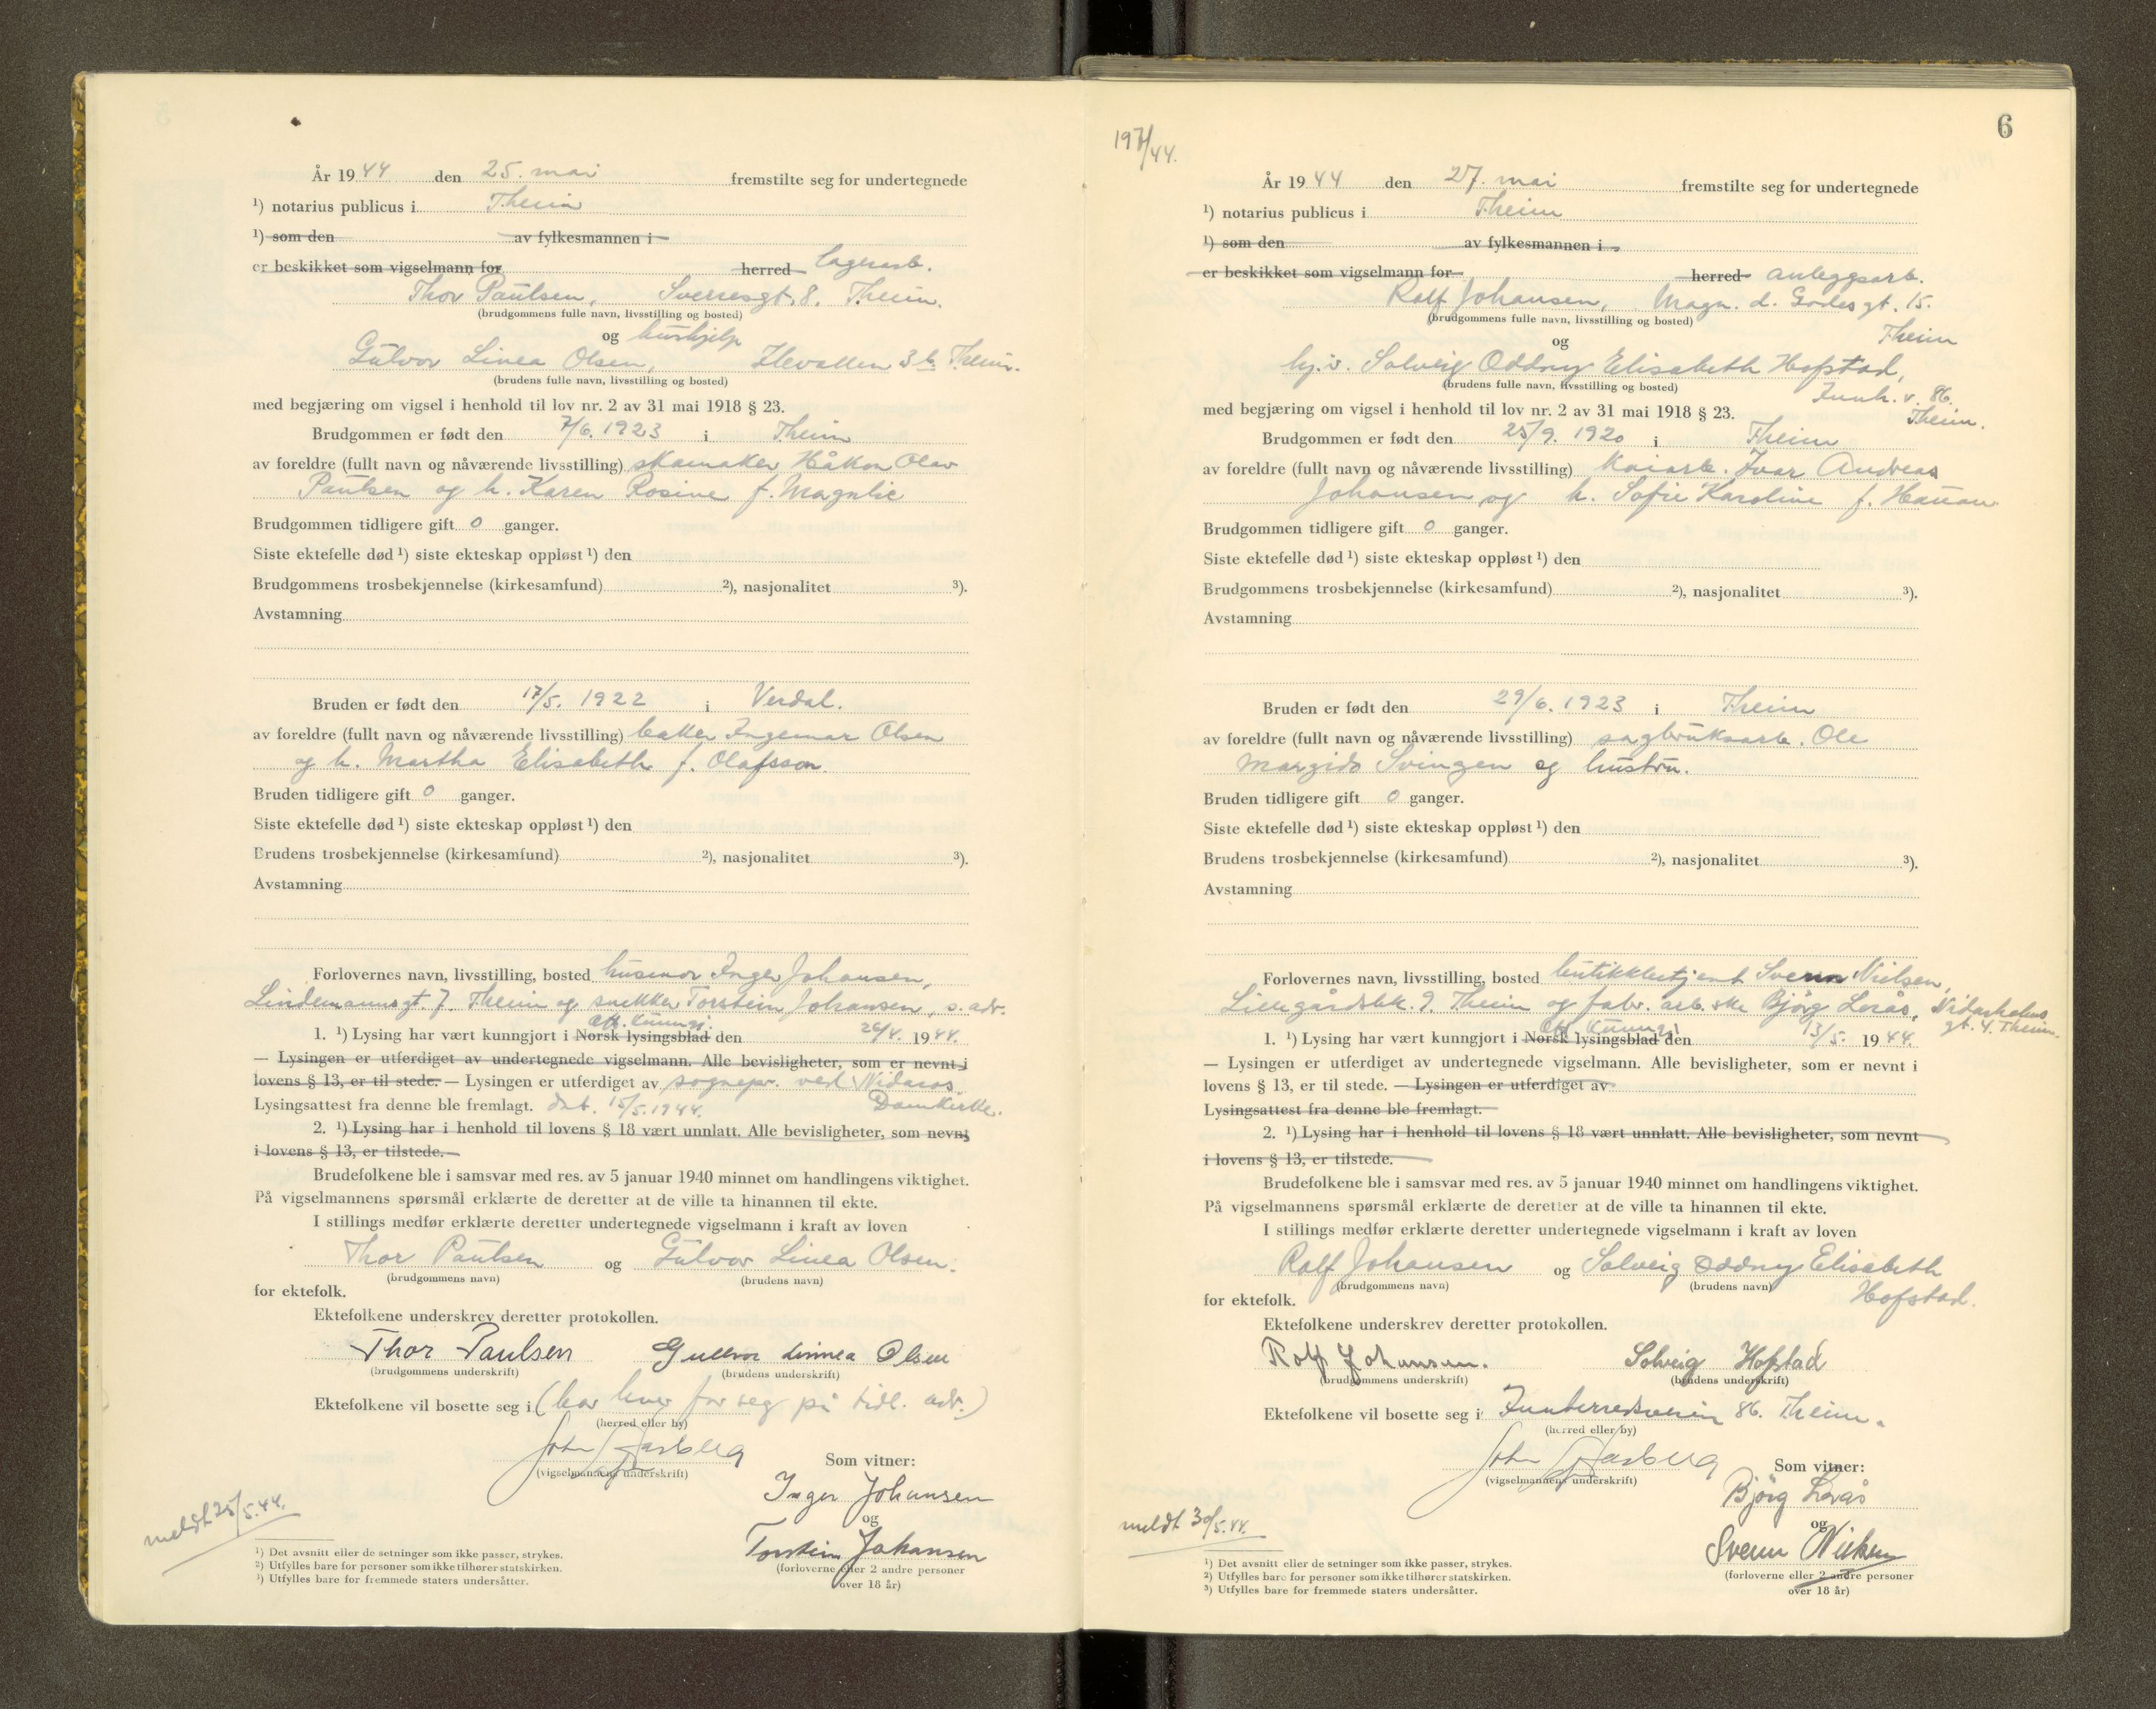 År 1944 den 25. mai fremstilte seg for undertegnede
¹) notarius publicus i Theim
¹) som den av fylkesmannen i
er beskikket som vigselmann for herred lagerarb.
Thor Paulsen, Sverresgt. 8. Theim.
(brudgommens fulle navn, livsstilling og bosted)
og hushjelp
Gulvor Linea Olsen, Ilevollen 3 b. Theim.
(brudens fulle navn, livsstilling og bosted)
med begjæring om vigsel i henhold til lov nr. 2 av 31 mai 1918 § 23.
Brudgommen er født den 7/6. 1923 i Theim
av foreldre (fullt navn og nåværende livsstilling) skomaker Håkon Olav
Paulsen og h. Karen Rosine f. Magnlie
Brudgommen tidligere gift 0 ganger.
Siste ektefelle død ¹) siste ekteskap oppløst ¹) den
Brudgommens trosbekjennelse (kirkesamfund) ²), nasjonalitet ³).
Avstamning
Bruden er født den 17/5. 1922 i Verdal.
av foreldre (fullt navn og nåværende livsstilling) Ingemar Olsen
og h. Martha Elisabeth f. Olafsson.
Bruden tidligere gift 0 ganger.
Siste ektefelle død ¹) siste ekteskap oppløst ¹) den
Brudens trosbekjennelse (kirkesamfund) ²), nasjonalitet ³).
Avstamning
Forlovernes navn, livsstilling, bosted husmor Inger Johansen,
Lindemannsgt. 7. Theim og snekker Torstein Johansen, s. adr.
off. kunngj.
1. ¹) Lysing har vært kunngjort i Norsk lysingsblad den 26/4. 1944.
— Lysingen er utferdiget av undertegnede vigselmann. Alle bevisligheter, som er nevnt i
lovens § 13, er til stede. — Lysingen er utferdiget av sognepr. ved Nidaros
Lysingsattest fra denne ble fremlagt. dat. 15/5. 1944. Domkirke.
2. ¹) Lysing har i henhold til lovens § 18 vært unnlatt. Alle bevisligheter, som nevnt
i lovens § 13, er tilstede.
Brudefolkene ble i samsvar med res. av 5 januar 1940 minnet om handlingens viktighet.
På vigselmannens spørsmål erklærte de deretter at de ville ta hinannen til ekte.
I stillings medfør erklærte deretter undertegnede vigselmann i kraft av loven
Thor Paulsen og Gulvor Linea Olsen.
(brudgommens navn) (brudens navn)
for ektefolk.
Ektefolkene underskrev deretter protokollen.
Thor Paulsen Gullvor Linnea Olsen
(brudgommens underskrift) (brudens underskrift)
Ektefolkene vil bosette seg i (bor hver for seg på tidl. adr.)
(herred eller by)
(vigselmannens underskrift) Som vitner:
Inger Johansen
og
Torstein Johansen
(forloverne eller 2 andre personer
over 18 år)
meldt 25/5.44.
¹) Det avsnitt eller de setninger som ikke passer, strykes.
²) Utfylles bare for personer som ikke tilhører statskirken.
³) Utfylles bare for fremmede staters undersåtter.
6
197/44.
År 1944 den 27. mai fremstilte seg for undertegnede
¹) notarius publicus i Theim
¹) som den av fylkesmannen i
er beskikket som vigselmann for herred anleggsarb.
Rolf Johansen, Magn. d. Godes gt. 15.
(brudgommens fulle navn, livsstilling og bosted) Theim
og
hj.v. Solveig Oddny Elisabeth Hofstad,
(brudens fulle navn, livsstilling og bosted) Innh. v. 86.
med begjæring om vigsel i henhold til lov nr. 2 av 31 mai 1918 § 23. Theim.
Brudgommen er født den 25/9. 1920 i Theim
av foreldre (fullt navn og nåværende livsstilling) kaiarb. Ivar Andreas
Johansen og h. Sofie Karoline f. Hauan
Brudgommen tidligere gift 0 ganger.
Siste ektefelle død ¹) siste ekteskap oppløst ¹) den
Brudgommens trosbekjennelse (kirkesamfund) ²), nasjonalitet ³).
Avstamning
Bruden er født den 29/6. 1923 i Theim
av foreldre (fullt navn og nåværende livsstilling) sagbruksarb. Ole
Margido Svingen og hustru.
Bruden tidligere gift 0 ganger.
Siste ektefelle død ¹) siste ekteskap oppløst ¹) den
Brudens trosbekjennelse (kirkesamfund) ²), nasjonalitet ³).
Avstamning
Forlovernes navn, livsstilling, bosted butikkbetjent Svenn Nielsen,
Lillegårdsbk. 9. Theim og fabr. arb.ske Bjørg Lerås, Nidarholms
gt. 4. Theim.
off. kunngj.
1. ¹) Lysing har vært kunngjort i Norsk lysingsblad den 13/5. 1944.
— Lysingen er utferdiget av undertegnede vigselmann. Alle bevisligheter, som er nevnt i
lovens § 13, er til stede. — Lysingen er utferdiget av
Lysingsattest fra denne ble fremlagt.
2. ¹) Lysing har i henhold til lovens § 18 vært unnlatt. Alle bevisligheter, som nevnt
i lovens § 13, er tilstede.
Brudefolkene ble i samsvar med res. av 5 januar 1940 minnet om handlingens viktighet.
På vigselmannens spørsmål erklærte de deretter at de ville ta hinannen til ekte.
I stillings medfør erklærte deretter undertegnede vigselmann i kraft av loven
Rolf Johansen og Solveig Oddny Elisabeth
(brudgommens navn) (brudens navn) Hofstad.
for ektefolk.
Ektefolkene underskrev deretter protokollen.
Rolf Johansen. Solveig Hofstad
(brudgommens underskrift) (brudens underskrift)
Ektefolkene vil bosette seg i Innherredsveien 86. Theim.
(herred eller by)
(vigselmannens underskrift) Som vitner:
Bjørg Lerås
og
Svenn Nielsen
(forloverne eller 2 andre personer
over 18 år)
meldt 30/5.44.
¹) Det avsnitt eller de setninger som ikke passer, strykes.
²) Utfylles bare for personer som ikke tilhører statskirken.
³) Utfylles bare for fremmede staters undersåtter.